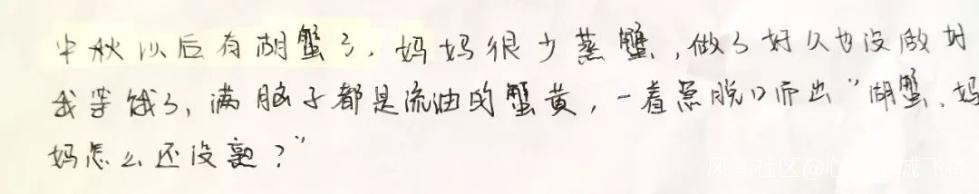 中秋以后有胡蟹了，妈妈很少蒸蟹，做了好久也没做好
我等饿了，满脑子都是流油的蟹黄，一着急脱口而出“湖蟹、妈
妈怎么还没熟？”
风闻社区@心